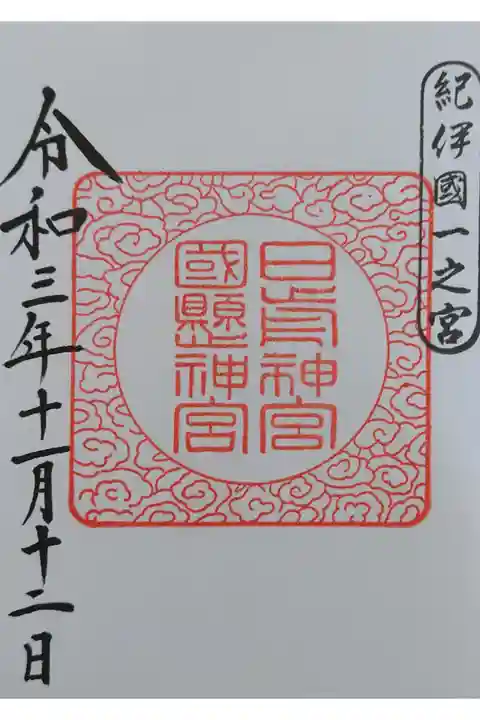 紀伊國一之宮
日前神宮
國懸神宮
令和三年十一月十二日